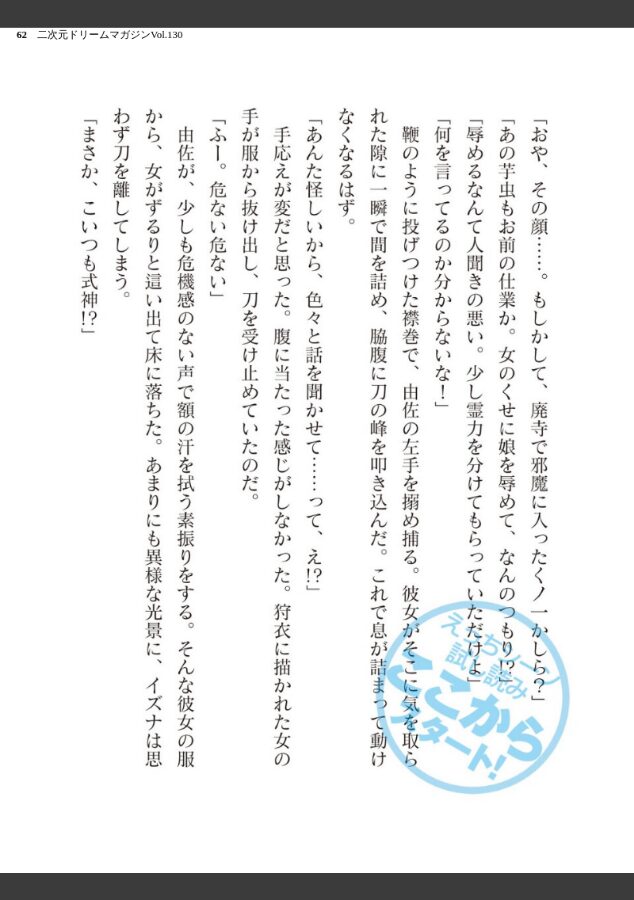 62 二次元ドリームマガジンVol.130
「おや、その顔……。もしかして、廃寺で邪魔に入ったくノ一かしら？」
「あの芋虫もお前の仕業か。女のくせに娘を辱めて、なんのつもり!?」
「辱めるなんて人聞きの悪い。少し霊力を分けてもらっていただけよ」
「何を言ってるのか分からないな！」
鞭のように投げつけた襟巻で、由佐の左手を搦め捕る。彼女がそこに気を取ら
れた隙に一瞬で間を詰め、脇腹に刀の峰を叩き込んだ。これで息が詰まって動け
なくなるはず。
「あんた怪しいから、色々と話を聞かせて……って、え!?」
手応えが変だと思った。腹に当たった感じがしなかった。狩衣に描かれた女の
手が服から抜け出し、刀を受け止めていたのだ。
「ふー。危ない危ない」
由佐が、少しも危機感のない声で額の汗を拭う素振りをする。そんな彼女の服
から、女がずるりと這い出て床に落ちた。あまりにも異様な光景に、イズナは思
わず刀を離してしまう。
「まさか、こいつも式神!?」
えっちシーン
試し読み
ここから
スタート!